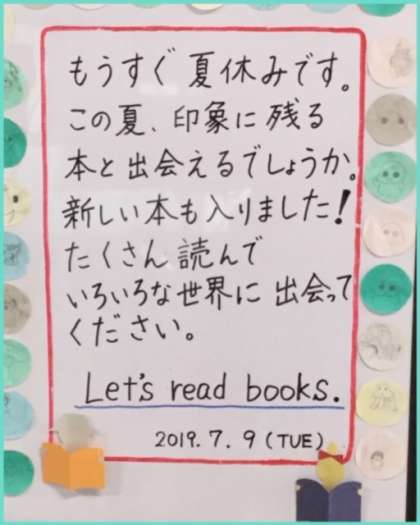 もうすぐ夏休みです。
この夏、印象に残る
本と出会えるでしょうか。
新しい本も入りました!
たくさん読んで
いろいろな世界に出会って
ください。
Let's read books.
2019.7.9(TUE)